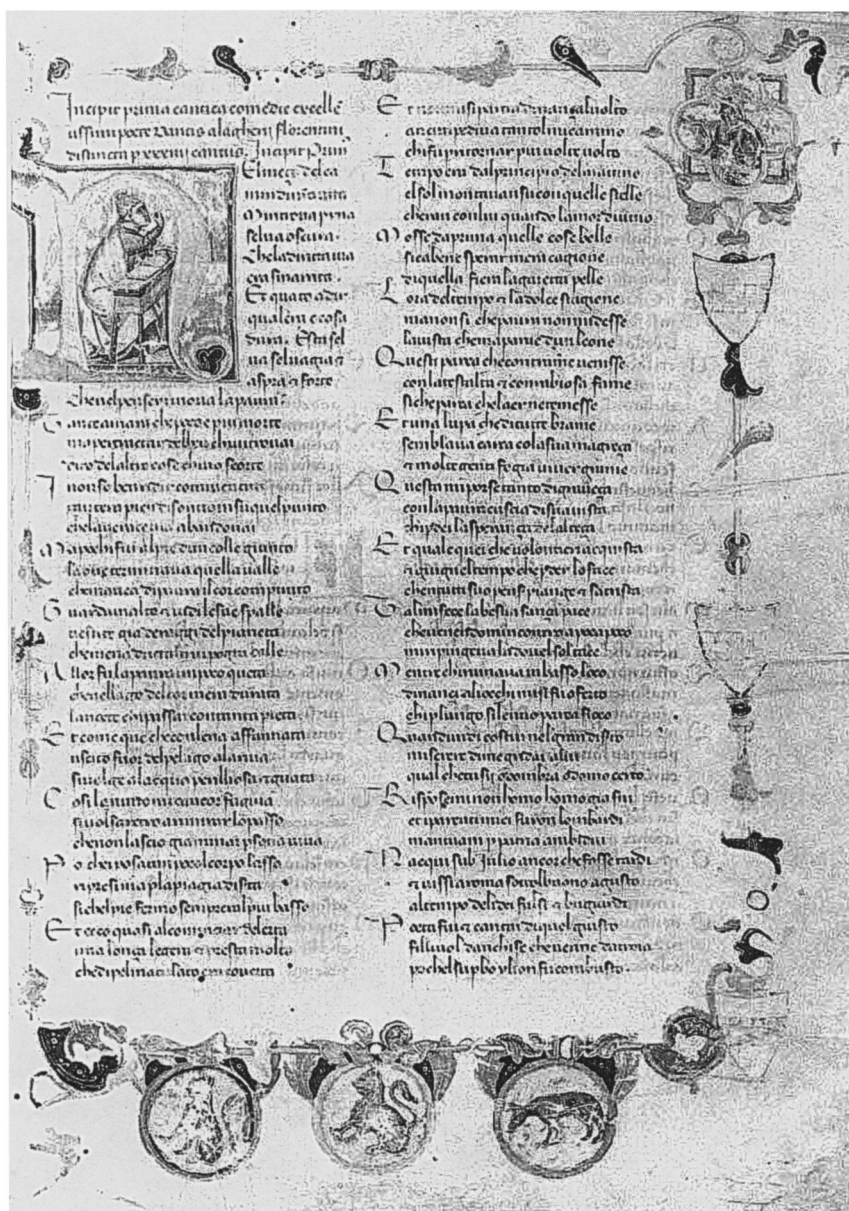 Incipit prima cantica comedie excelle
tissimi poete Dantis alagherii florentini
distincta p xxxiiii cantus. Incipit Prim
El meço del ca
min di nr̄a uita
Mi ritrouai p una
selua oscura.
Che la diricta uia
era smarrita.
Et quāto a dir
qual era e cosa
dura. Esta sel
ua seluagia ⁊
aspra ⁊ forte
Che nel penser rinoua la paura
Tant e amara che poco e piu morte
ma per tractar del ben ch ui trouai
diro de laltre cose ch i uo scorte
I non so ben ridir com u entrai
tant era pien di sonno in su quel punto
che la uerace uia abandonai
Ma po chi fui al pie dun colle giunto
la oue terminaua quella ualle
che mauea di paura il cor compunto
Guardai in alto ⁊ uidi le sue spalle
uestite gia de raggi del pianeta
che mena dricto altrui p ogni calle
Allor fu la paura un poco queta
che nel lago del cor mera durata
la nocte chi passai con tanta pieta
Et come quei che con lena affannata
uscito fuor del pelago ala riua
si uolge alacqua perigliosa ⁊ guata
Cosi lanimo mio cancor fugiua
si uolse a retro a rimirar lo passo
che non lascio giamai psona uiua
Po chei posato un poco il corpo lasso
ripresi uia p la piagia diserta
si chel pie fermo sempre era l piu basso
Et ecco quasi al cominciar de lerta
una lonça legera ⁊ presta molto
che di pel maculato era couerta
Et non mi si partia dinançi al uolto
anci impediua tanto l mio camino
chi fui p ritornar piu uolte uolto
Tempo era dal principio del matino
el sol montaua in su con quelle stelle
cheran con lui quando lamor diuino
Mosse da prima quelle cose belle
si ca bene sperar mera cagione
di quella fiera la gaietta pelle
Lora del tempo ⁊ la dolce stagione
ma non si che paura non mi desse
la uista che maparue dun leone
Questi parea che contra me uenisse
con la testalta ⁊ con rabiosa fame
si che parea che laer ne temesse
Et una lupa che di tutte brame
semblaua carca cola sua magreça
⁊ molte genti fe gia uiuer grame
Questa mi porse tanto di graueça
con la paura cuscia di sua uista
chi pdei la sperança de lalteça
Et quale quei che uolontieri acquista
⁊ giugne l tempo che pder lo face
che n tutti suo pensier piange ⁊ satrista
Tal mi fece la bestia sança pace
che uenendomi incontro a poco a poco
mi ripingeua la doue l sol tace
Mentre chi ruinaua in basso loco
dinançi aliocchi mi si fu oferto
chi p lungo silentio parea fioco
Quando uidi costui nel gran diserto
miserere di me gridai a lui
qual che tu sij od ombra od omo certo
Rispuosemi non homo homo gia fui
et i parenti miei furon lombardi
mantuani p patria ambedui
Nacqui sub Julio ancor che fosse tardi
⁊ uissi a roma sotto l buono agusto
al tempo de li dei falsi ⁊ bugiardi
Poeta fui ⁊ cantai di quel giusto
filiuol danchise che uenne da troia
po chel supbo ylion fu combusto.